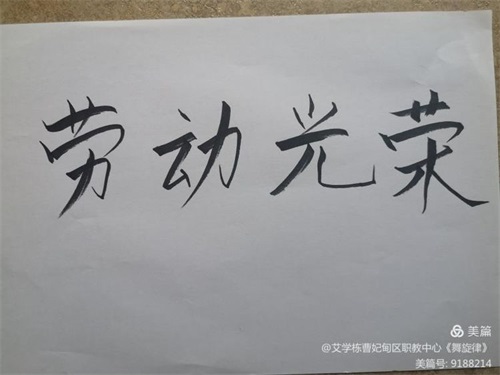 劳动光荣
美篇
@艾学栋曹妃甸区职教中心《舞旋律》
美篇号: 9188214